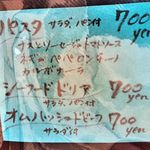 パスタ サラダ、パン付 700 yen
ナスとソーセージのトマトソース
ペペロンチーノ
カルボナーラ
シーフードドリア 700 yen
サラダ、パン付
オムハッシュドビーフ 700 yen
サラダ付